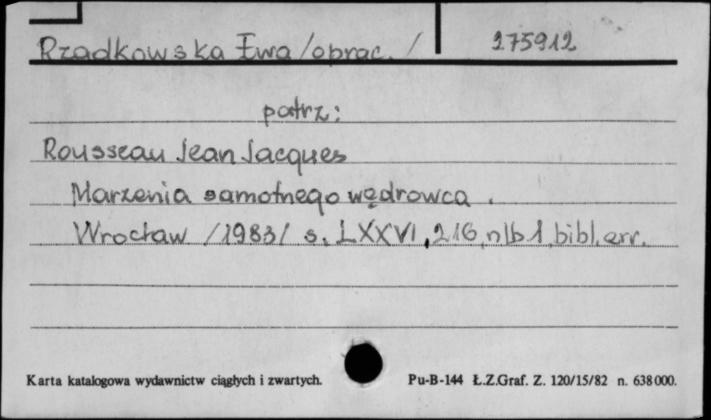 Rządkowska Ewa /oprac./ 275912
patrz:
Rousseau Jean Jacques
Marzenia samotnego wędrowca.
Wrocław /1983/ s. LXXVI, 216, nlb 1, bibl. err.
Karta katalogowa wydawnictw ciągłych i zwartych. Pu-B-144 Ł.Z.Graf. Z. 120/15/82 n. 638000.